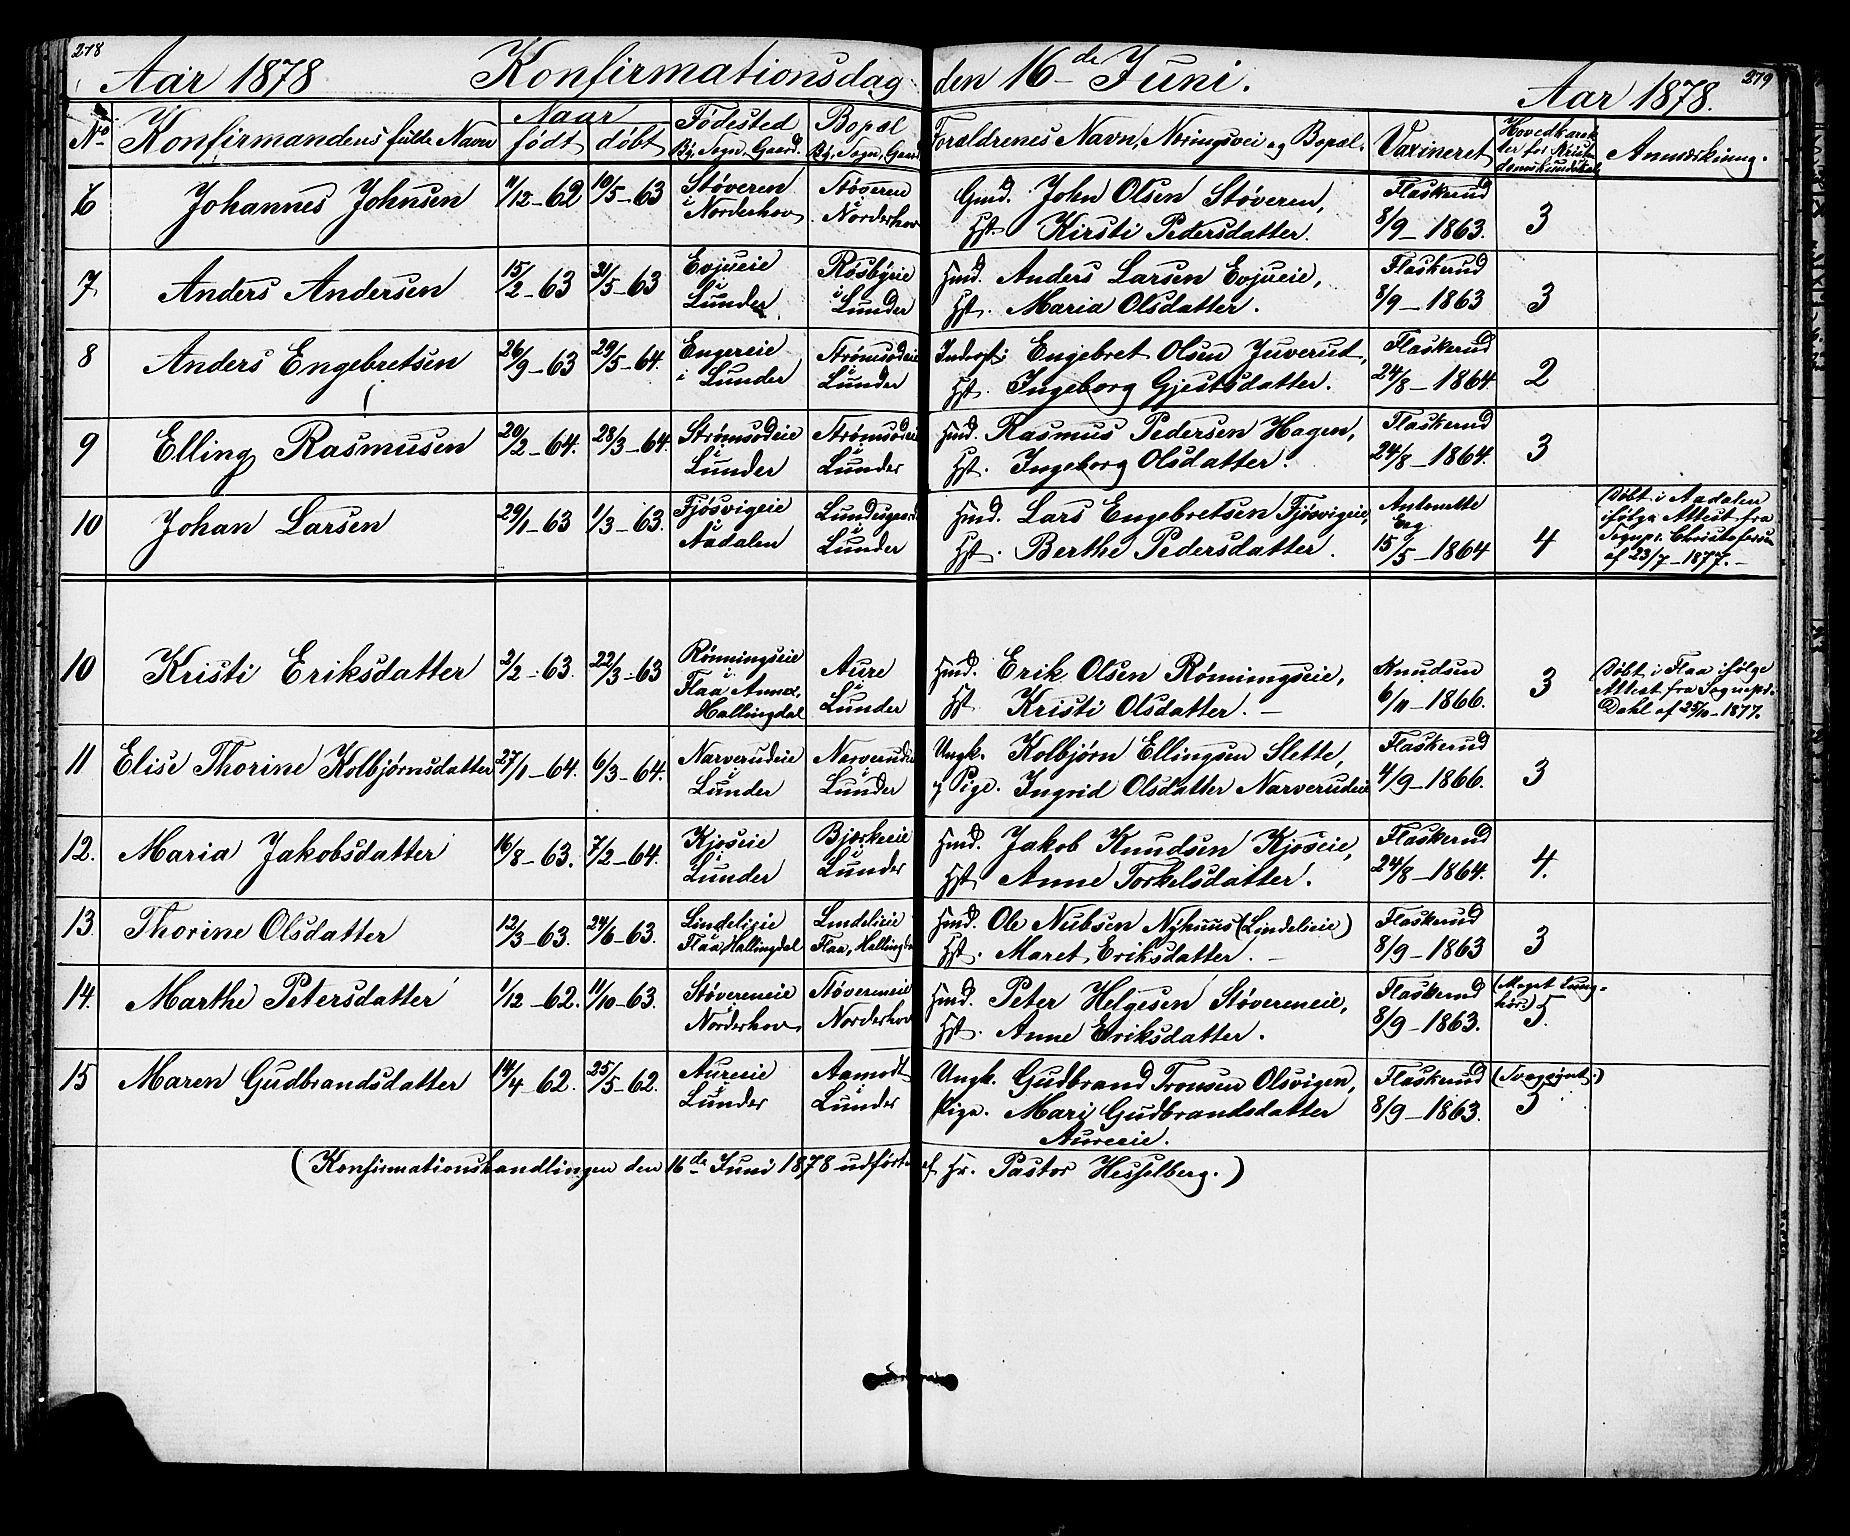 278
Aar 1878 Konfirmationsdag den 16de Juni. Aar 1878. 279
No Konfirmandens fulde Navn Naar født døbt Fødested By, Sogn, Gaard. Bopæl By, Sogn, Gaard Forældrenes Navn, Næringsvei og Bopæl. Vaxineret Hovedkarakter for Anmærkning.
6 Johannes Johnsen 11/12-62 10/5-63 Støveren i Norderhov Støveren i Norderhov Gmd. John Olsen Støveren, Flaskerud
Hst. Kirsti Pedersdatter. 8/9-1863. 3
7 Anders Andersen 15/2-63 31/5-63 Evjueie i Lunder Røsbyeie i Lunder Hmd. Anders Larsen Evjueie, Flaskerud
Hst. Maria Olsdatter. 8/9-1863 3
8 Anders Engebretsen 26/9-63 29/5-64. Engereie i Lunder Strømsodeie i Lunder Inderst: Engebret Olsen Juverud, Flaskerud
Hst. Ingeborg Gjestsdatter. 24/8-1864 2
9 Elling Rasmusen 20/2-64. 28/3-64. Strømsodeie i Lunder Strømsodeie i Lunder Hmd. Rasmus Pedersen Hagen, Flaskerud
Hst. Ingeborg Olsdatter. 24/8-1864. 3
10 Johan Larsen 29/1-63 1/3-63. Fjøsvigeie i Aadalen Lundesgaard i Lunder Hmd. Lars Engebretsen Fjøsvigeie, Antonette Eng
Hst. Berthe Pedersdatter. 15/5-1864 4
Døbt i Aadalen
ifølge Attest fra
Sognepr. Christofersen
af 23/7-1877.-
10 Kristi Eriksdatter 2/2-63. 22/3-63 Rønningseie i Flaa Annex, Hallingdal Aure i Lunder Hmd. Erik Olsen Rønningseie, Knudsen
Hst Kristi Olsdatter.- 6/11-1866. 3
Døbt i Flaa ifølge
Attest fra Sognepr.
Dahl af 25/10-1877.
11 Elise Thorine Kolbjørnsdatter 27/1-64. 6/3-64. Narverudeie i Lunder Narverudeie i Lunder Ungk. Kolbjørn Ellingsen Slette, Flaskerud
g Pige. Ingrid Olsdatter Narverudeie 4/9-1866. 3
12. Maria Jakobsdatter 16/8-63. 7/2-64. Kjøseie i Lunder Bjerkeeie i Lunder Hmd. Jakob Knudsen Kjøseie, Flaskerud
Hst. Anne Torkelsdatter. 24/8-1864. 4.
13. Thorine Olsdatter 12/3-63. 24/6-63. Lindelieie Flaa, Hallingdal Lindelieie Flaa, Hallingdal Hmd. Ole Nubsen Nyhuus (Lindelieie) Flaskerud
Hst. Maret Eriksdatter.- 8/9-1863 3
14. Marthe Petersdatter 1/12-62. 11/10-63. Støvereneie Norderhov Støvereneie Norderhov Hmd. Peter Helgesen Støvereneie, Flaskerud (Meget Tung-
Hst. Anne Eriksdatter. 8/9-1863. hør.) 5.
15 Maren Gudbrandsdatter 14/4-62. 25/5-62. Aureeie i Lunder Aamodt i Lunder Ungk. Gudbrand Tronsen Olsvigen, Flaskerud (Svagsynt.)
Pige. Mari Gudbrandsdatter 8/9-1863. 3
Aureeie.
(Konfirmationshandlingen den 16de Juni 1878 udført af Hr. Pastor Hesselberg.)